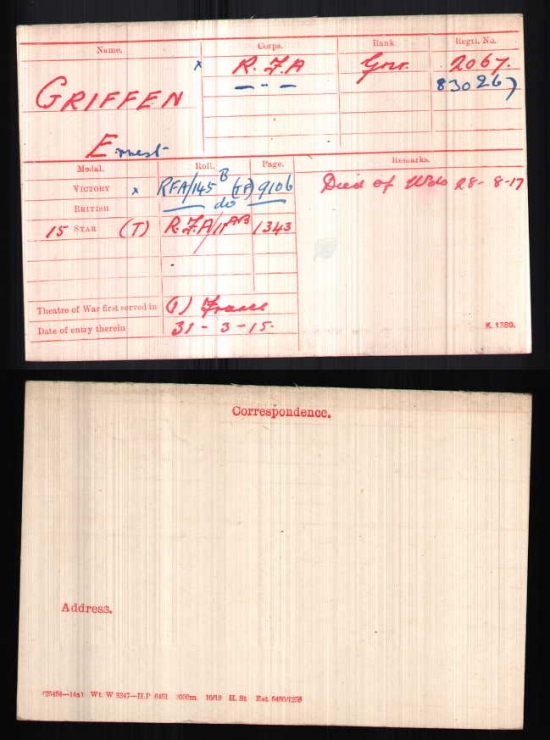 Name. Corps. Rank. Regtl. No.
GRIFFEN x R.F.A Gnr. 2067.
— " — 830267
Ernest
Medal. Roll. Page. Remarks.
VICTORY x RFA/145B 9106 Died of Wds 28-8-17
BRITISH — do —
15 STAR (T) R.F.A/11 1343
Theatre of War first served in (1) France
Date of entry therein 31-3-15.
K. 1380.
Correspondence.
Address.
Wt. W 5347—H.P 6451 H. St